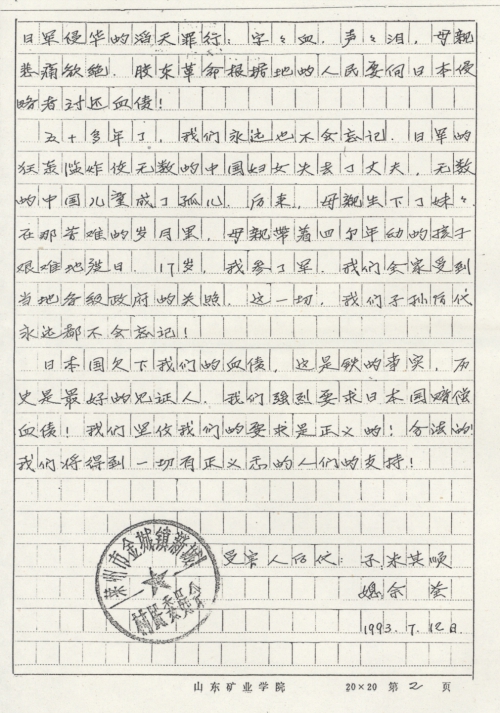 日军侵华的滔天罪行；字々血，声々泪，母親
悲痛欲絶．胶东革命根据地的人民要向日本侵
略者讨还血债！
五十多年了，我们永远也不会忘记．日軍的
狂轰滥炸使无数的中国妇女失去了丈夫，无数
的中国儿童成了孤儿．后来，母親生下了妹々．
在那苦难的岁月里，母親带着四个年幼的孩子
艰难地渡日．17岁，我参了軍．我们全家受到
当地各級政府的关照．这一切，我们子孙后代
永远都不会忘记！
日本国欠下我们的血债，这是铁的事实，历
史是最好的见证人．我们强烈要求日本国賠偿
血债！我们坚信我们的要求是正义的！合法的！
我们将得到一切有正义感的人们的支持！
受害人后代：子 其順
媳
1993.7.12日.
莱州市金城镇新城
村民委员会
山东矿业学院 20×20 第2页